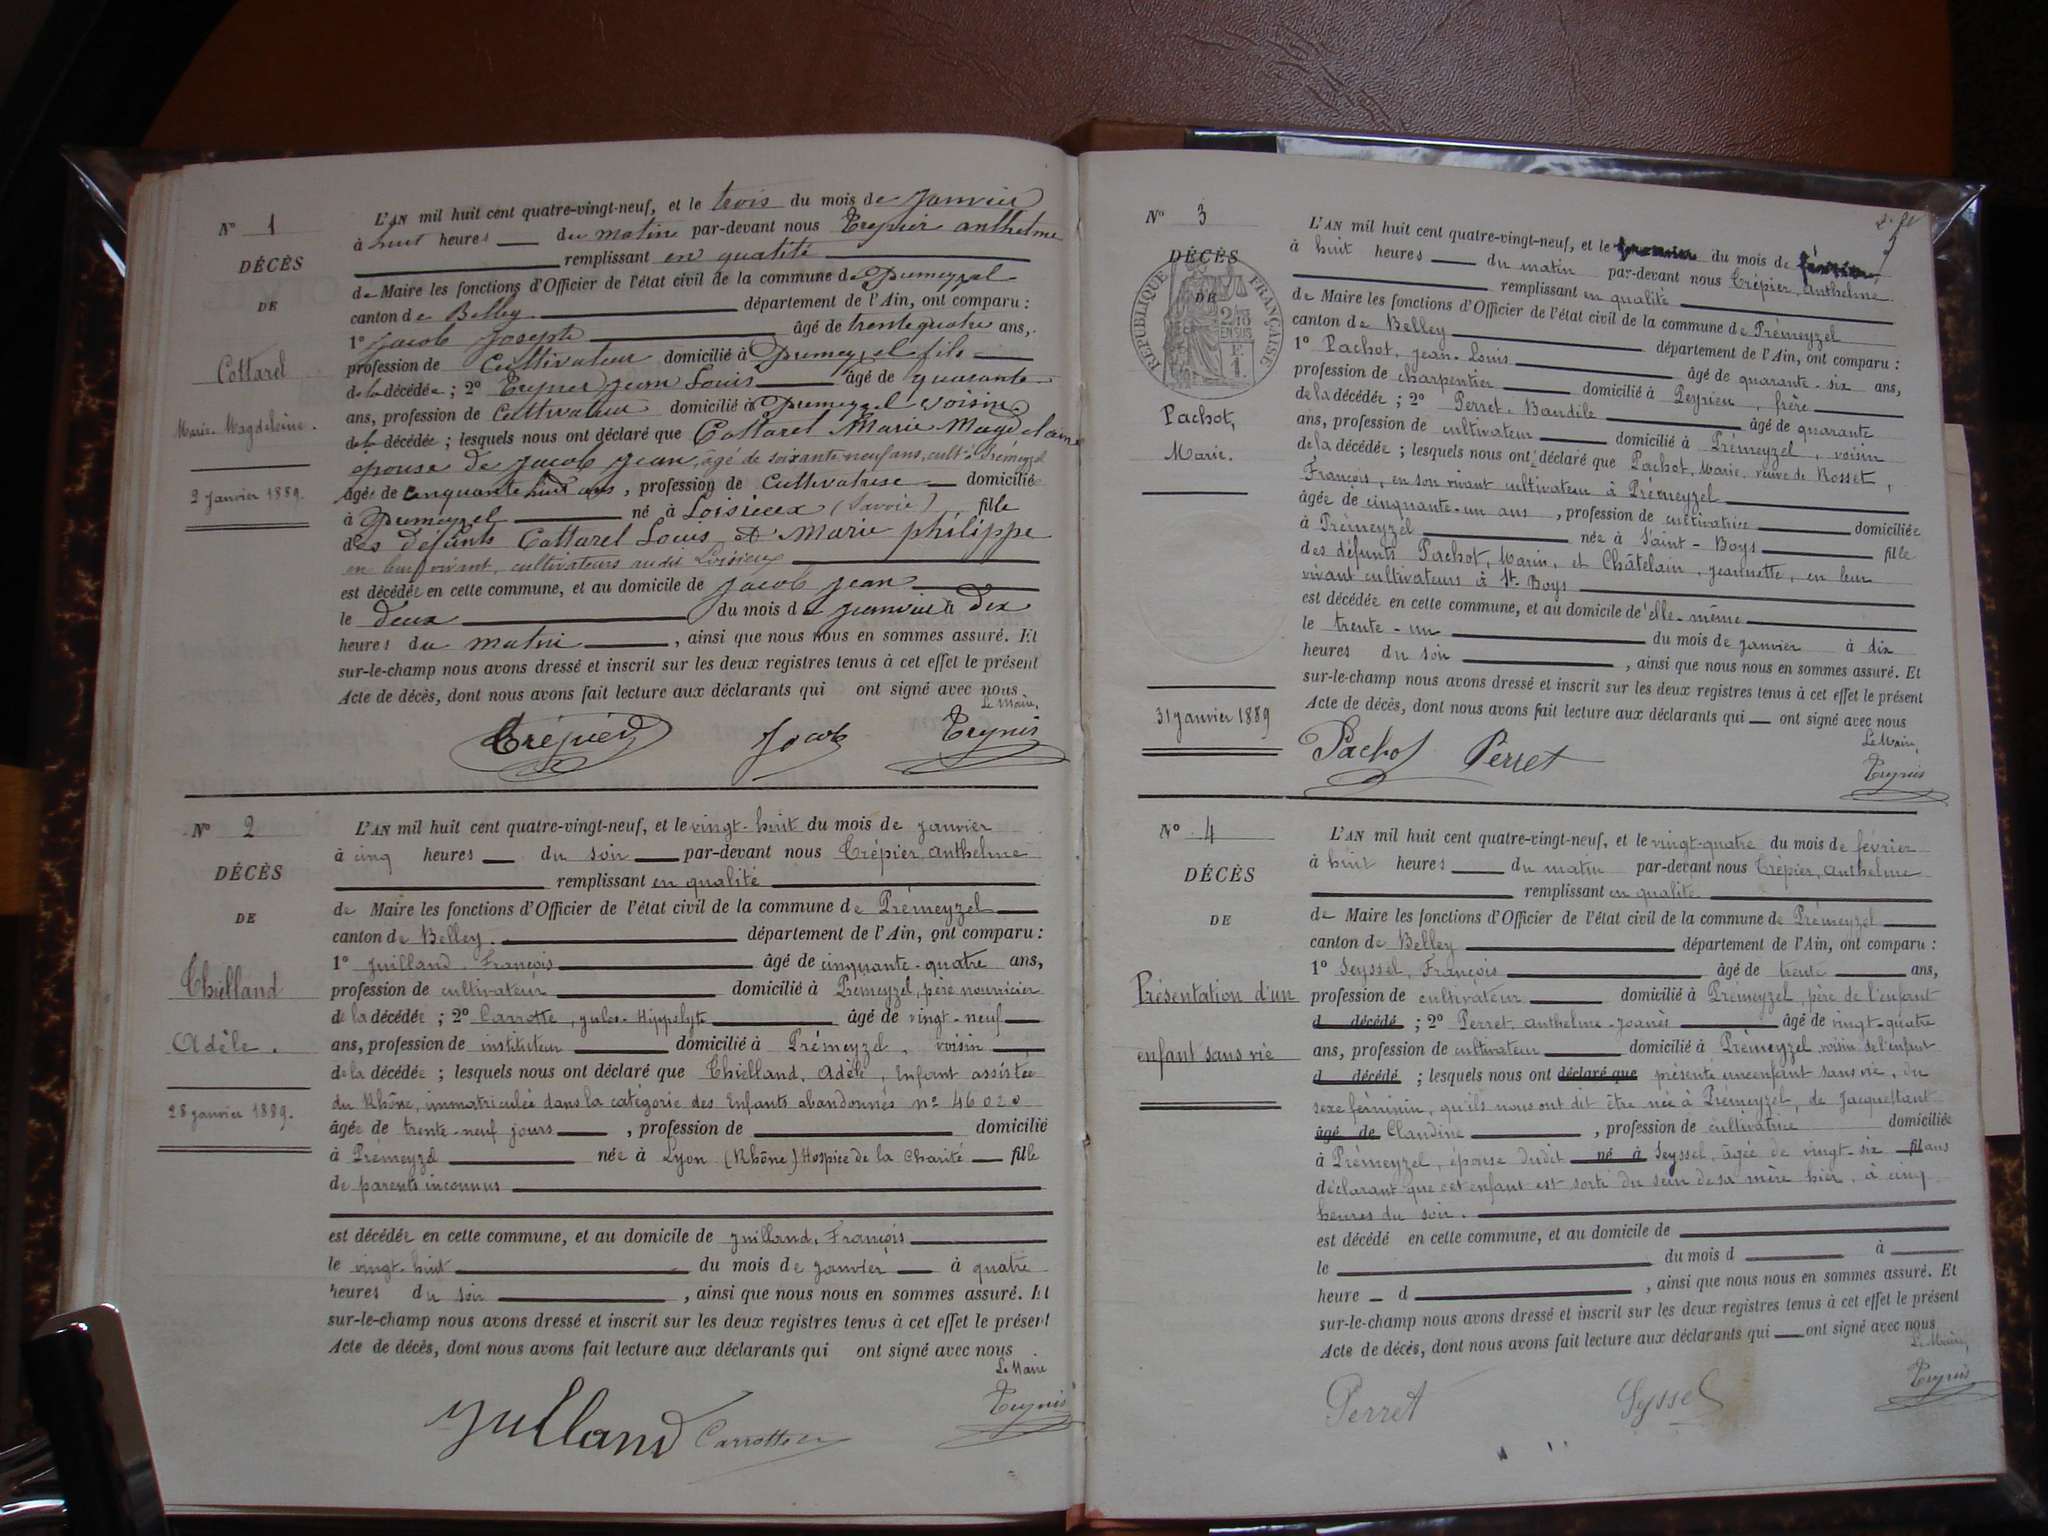 N° 1
DÉCÈS
DE
Cottarel
Marie-Magdeleine.
2 Janvier 1889.
L'AN mil huit cent quatre-vingt-neuf, et le trois du mois de Janvier
à huit heures du matin par-devant nous Trépier anthelme
remplissant en qualité
de Maire les fonctions d'Officier de l'état civil de la commune de Premeyzel
canton de Belley département de l'Ain, ont comparu :
1° Jacob Joseph âgé de trente quatre ans,
profession de Cultivateur domicilié à Premeyzel fils
de la décédée ; 2° Trepier Jean Louis âgé de quarante
ans, profession de Cultivateur domicilié à Premeyzel voisin
de la décédée ; lesquels nous ont déclaré que Cottarel Marie Magdelaine
epouse de Jacob Jean, âgé de soixante neuf ans, cult. Prémeyzel
âgée de Cinquante huit ans, profession de Cultivatrice domicilié
à Premeyzel né à Loisieux (Savoie), fille
des défunts Cottarel Louis et Marie philippe
en leur vivant, cultivateurs audit Loisieux
est décédée en cette commune, et au domicile de Jacob Jean
le deux du mois de Janvier à dix
heures du matin, ainsi que nous nous en sommes assuré. Et
sur-le-champ nous avons dressé et inscrit sur les deux registres tenus à cet effet le présent
Acte de décès, dont nous avons fait lecture aux déclarants qui ont signé avec nous
Le Maire,
Trépier Jacob Trepier
N° 2
DÉCÈS
DE
Thielland
Adèle.
28 janvier 1889.
L'AN mil huit cent quatre-vingt-neuf, et le vingt-huit du mois de janvier
à cinq heures du soir par-devant nous Trépier, Anthelme
remplissant en qualité
de Maire les fonctions d'Officier de l'état civil de la commune de Prémeyzel
canton de Belley département de l'Ain, ont comparu :
1° Juilland, François âgé de cinquante-quatre ans,
profession de cultivateur domicilié à Prémeyzel, père nourricier
de la décédée ; 2° Carrotte, Jules-Hippolyte âgé de vingt-neuf
ans, profession de instituteur domicilié à Prémeyzel, voisin
de la décédée ; lesquels nous ont déclaré que Thielland, Adèle, Enfant assistée
du Rhône, immatriculée dans la catégorie des Enfants abandonnés n° 46020
âgée de trente-neuf jours, profession de domicilié
à Prémeyzel née à Lyon (Rhône) Hospice de la Charité fille
de parents inconnus
est décédée en cette commune, et au domicile de Juilland, François
le vingt-huit du mois de janvier à quatre
heures du soir, ainsi que nous nous en sommes assuré. Et
sur-le-champ nous avons dressé et inscrit sur les deux registres tenus à cet effet le présent
Acte de décès, dont nous avons fait lecture aux déclarants qui ont signé avec nous
Le Maire
Juilland Carrotte Trepier
N° 3
DÉCÈS
DE
RÉPUBLIQUE FRANÇAISE
Pachot,
Marie.
31 janvier 1889
L'AN mil huit cent quatre-vingt-neuf, et le premier du mois de février
à huit heures du matin par-devant nous Trépier, Anthelme
remplissant en qualité
de Maire les fonctions d'Officier de l'état civil de la commune de Prémeyzel
canton de Belley département de l'Ain, ont comparu :
1° Pachot, Jean-Louis âgé de quarante-six ans,
profession de charpentier domicilié à Peyrieu, frère
de la décédée ; 2° Perret, Baudile âgé de quarante
ans, profession de cultivateur domicilié à Prémeyzel, voisin
de la décédée ; lesquels nous ont déclaré que Pachot, Marie, veuve de Rosset,
François, en son vivant cultivateur à Prémeyzel
âgée de cinquante-un ans, profession de cultivatrice domiciliée
à Prémeyzel née à Saint-Boys fille
des défunts Pachot, Marin, et Châtelain, Jeannette, en leur
vivant cultivateurs à St. Boys
est décédée en cette commune, et au domicile de elle-même
le trente-un du mois de janvier à dix
heures du soir, ainsi que nous nous en sommes assuré. Et
sur-le-champ nous avons dressé et inscrit sur les deux registres tenus à cet effet le présent
Acte de décès, dont nous avons fait lecture aux déclarants qui ont signé avec nous
Le Maire,
Pachot Perret Trepier
N° 4
DÉCÈS
DE
Présentation d'un
enfant sans vie
L'AN mil huit cent quatre-vingt-neuf, et le vingt-quatre du mois de février
à huit heures du matin par-devant nous Trépier, Anthelme
remplissant en qualité
de Maire les fonctions d'Officier de l'état civil de la commune de Prémeyzel
canton de Belley département de l'Ain, ont comparu :
1° Seyssel, François âgé de trente ans,
profession de cultivateur domicilié à Prémeyzel, père de l'enfant
d décédé ; 2° Perret, Anthelme-Joanès âgé de vingt-quatre
ans, profession de cultivateur domicilié à Prémeyzel, voisin de l'enfant
d décédé ; lesquels nous ont déclaré que présenté un enfant sans vie, du
sexe féminin, qu'ils nous ont dit être née à Prémeyzel, de Jacquettant
âgé de Claudine, profession de cultivatrice domiciliée
à Prémeyzel, épouse dudit né à Seyssel, âgée de vingt-six fil ans
déclarant que cet enfant est sorti du sein de sa mère hier, à cinq
heures du soir.
est décédé en cette commune, et au domicile de
le du mois d à
heure d, ainsi que nous nous en sommes assuré. Et
sur-le-champ nous avons dressé et inscrit sur les deux registres tenus à cet effet le présent
Acte de décès, dont nous avons fait lecture aux déclarants qui ont signé avec nous
Le Maire,
Perret Seyssel Trepier